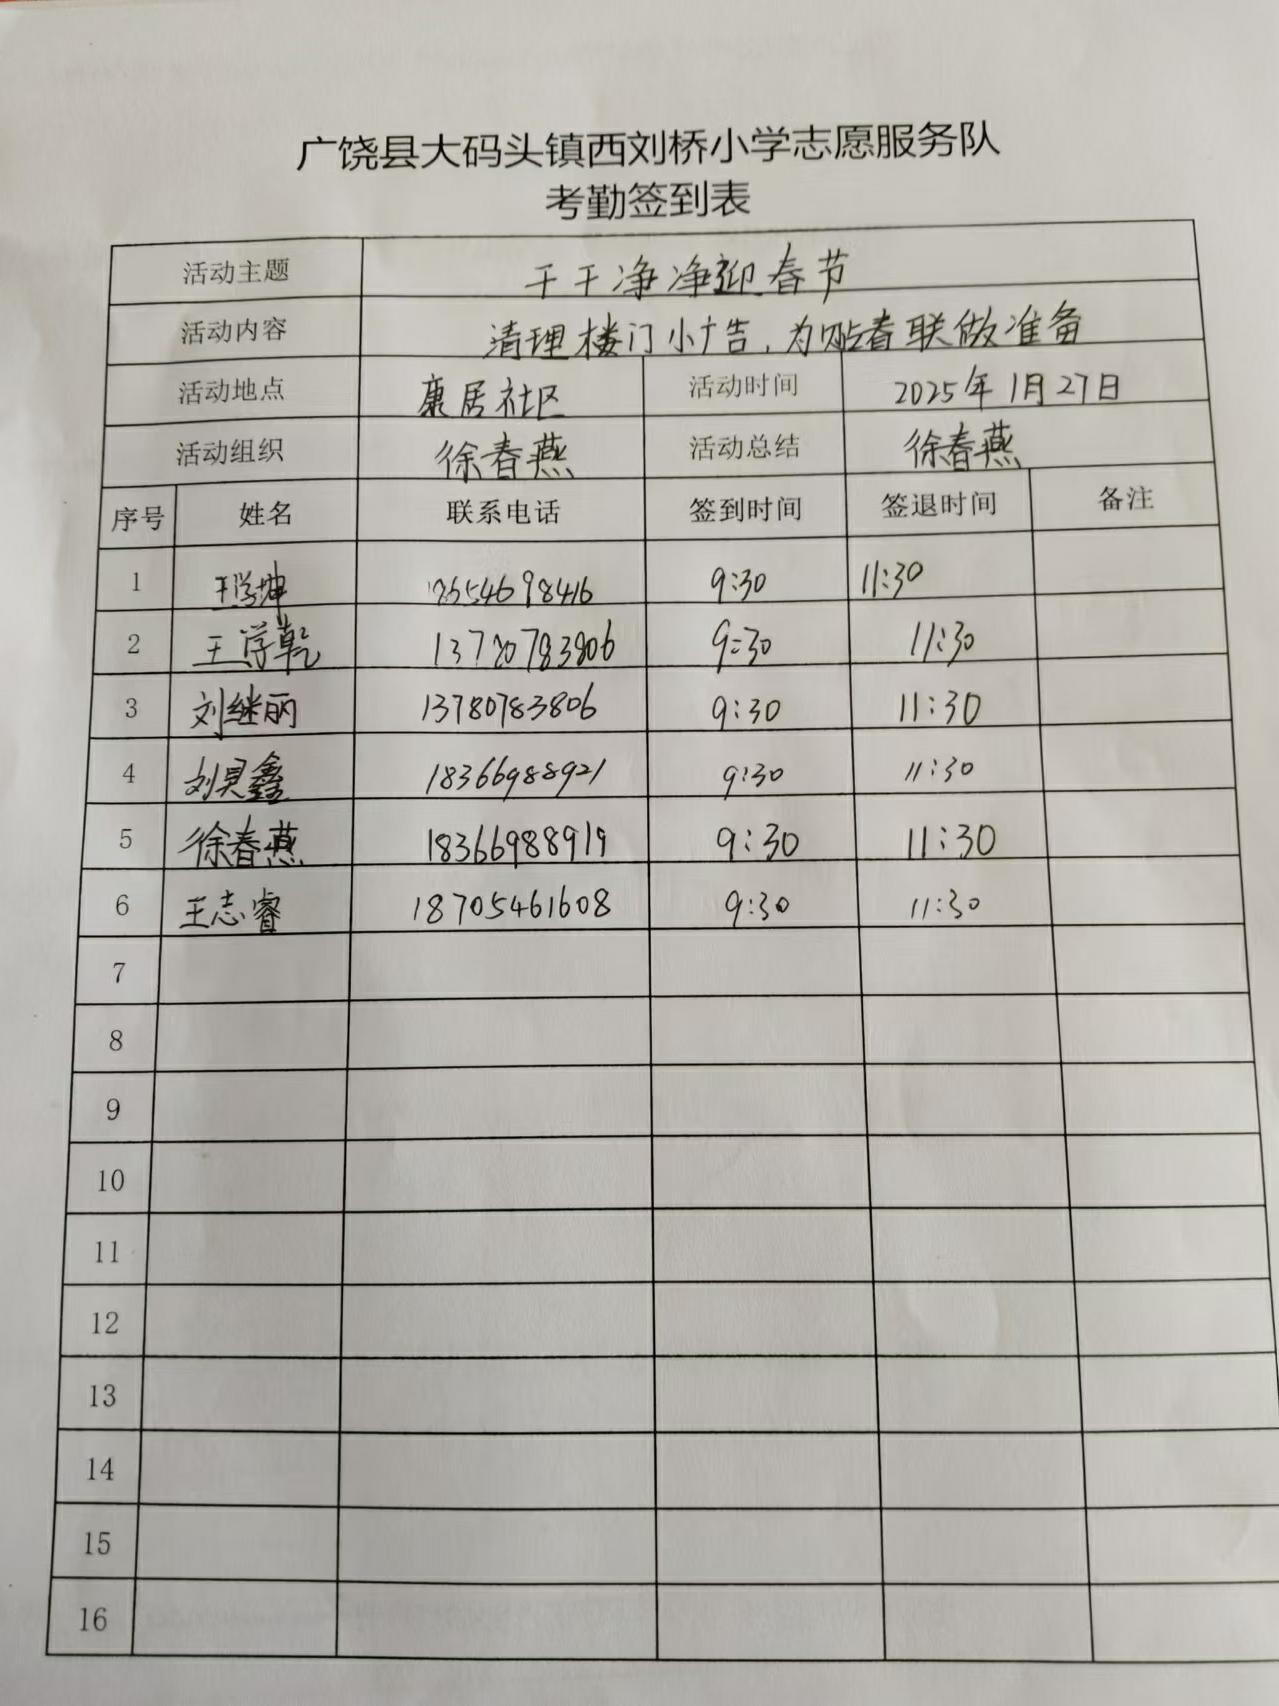 广饶县大码头镇西刘桥小学志愿服务队
考勤签到表
活动主题 干干净净迎春节
活动内容 清理楼门小广告，为贴春联做准备
活动地点 康居社区 活动时间 2025年1月27日
活动组织 徐春燕 活动总结 徐春燕
序号 姓名 联系电话 签到时间 签退时间 备注
1 王学坤 9:30 11:30
2 王学乾 13780783806 9:30 11:30
3 刘继丽 13780783806 9:30 11:30
4 刘昊鑫 18366988921 9:30 11:30
5 徐春燕 18366988919 9:30 11:30
6 王志睿 18705461608 9:30 11:30
7
8
9
10
11
12
13
14
15
16